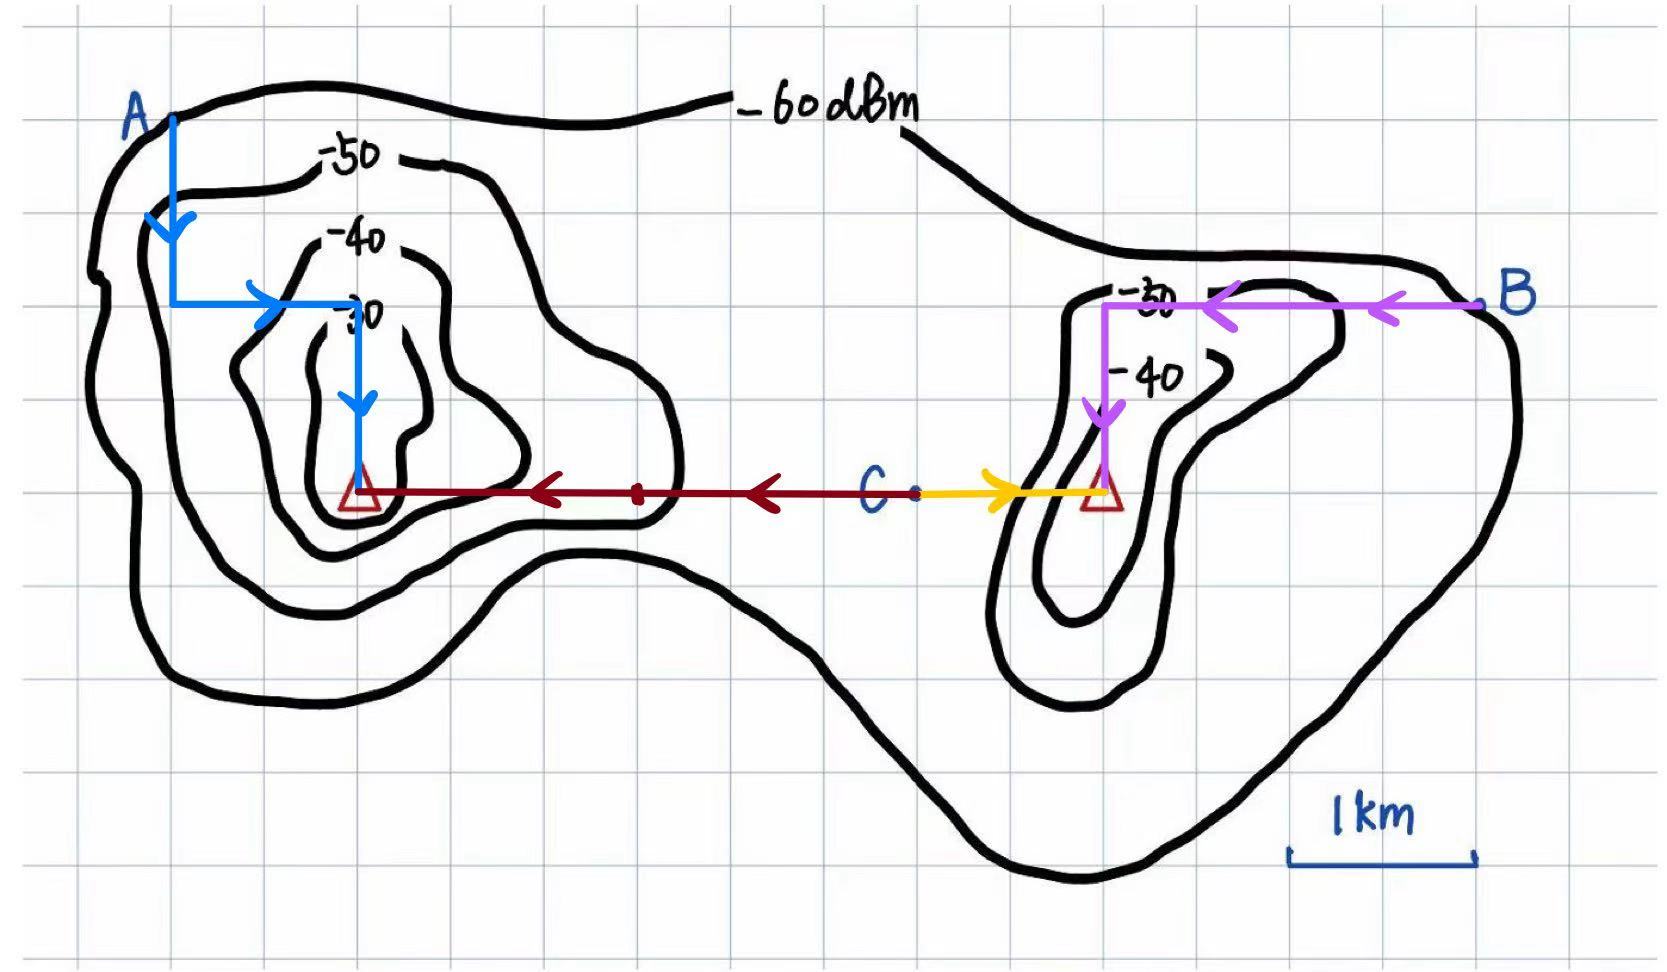 A
-60dBm
-50
-40
-30
B
-50
-40
C
1km